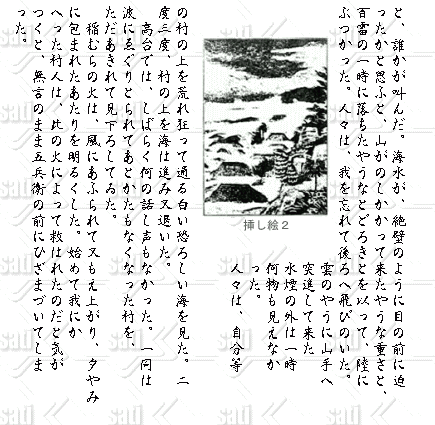 と、誰かが叫んだ。海水が、絶壁のように目の前に迫
ったかと思ふと、山がのしかかって来たやうな重さと、
百雷の一時に落ちたやうなとどろきとを以って、陸に
ぶつかった。人々は、我を忘れて後ろへ飛びのいた。
雲のやうに山手へ
突進して来た
水煙の外は一時
何物も見えなか
った。
人々は、自分等
挿し絵2
の村の上を荒れ狂って通る白い恐ろしい海を見た。二
度三度、村の上を海は進み又退いた。
高台では、しばらく何の話し声もなかった。一同は
波にゑぐりとられてあとかたもなくなった村を、
ただあきれて見下ろしてゐた。
稲むらの火は、風にあふられて又もえ上がり、夕やみ
に包まれたあたりを明るくした。始めて我にか
へった村人は、此の火によって救はれたのだと気が
つくと、無言のまま五兵衛の前にひざまづいてしま
った。
sati